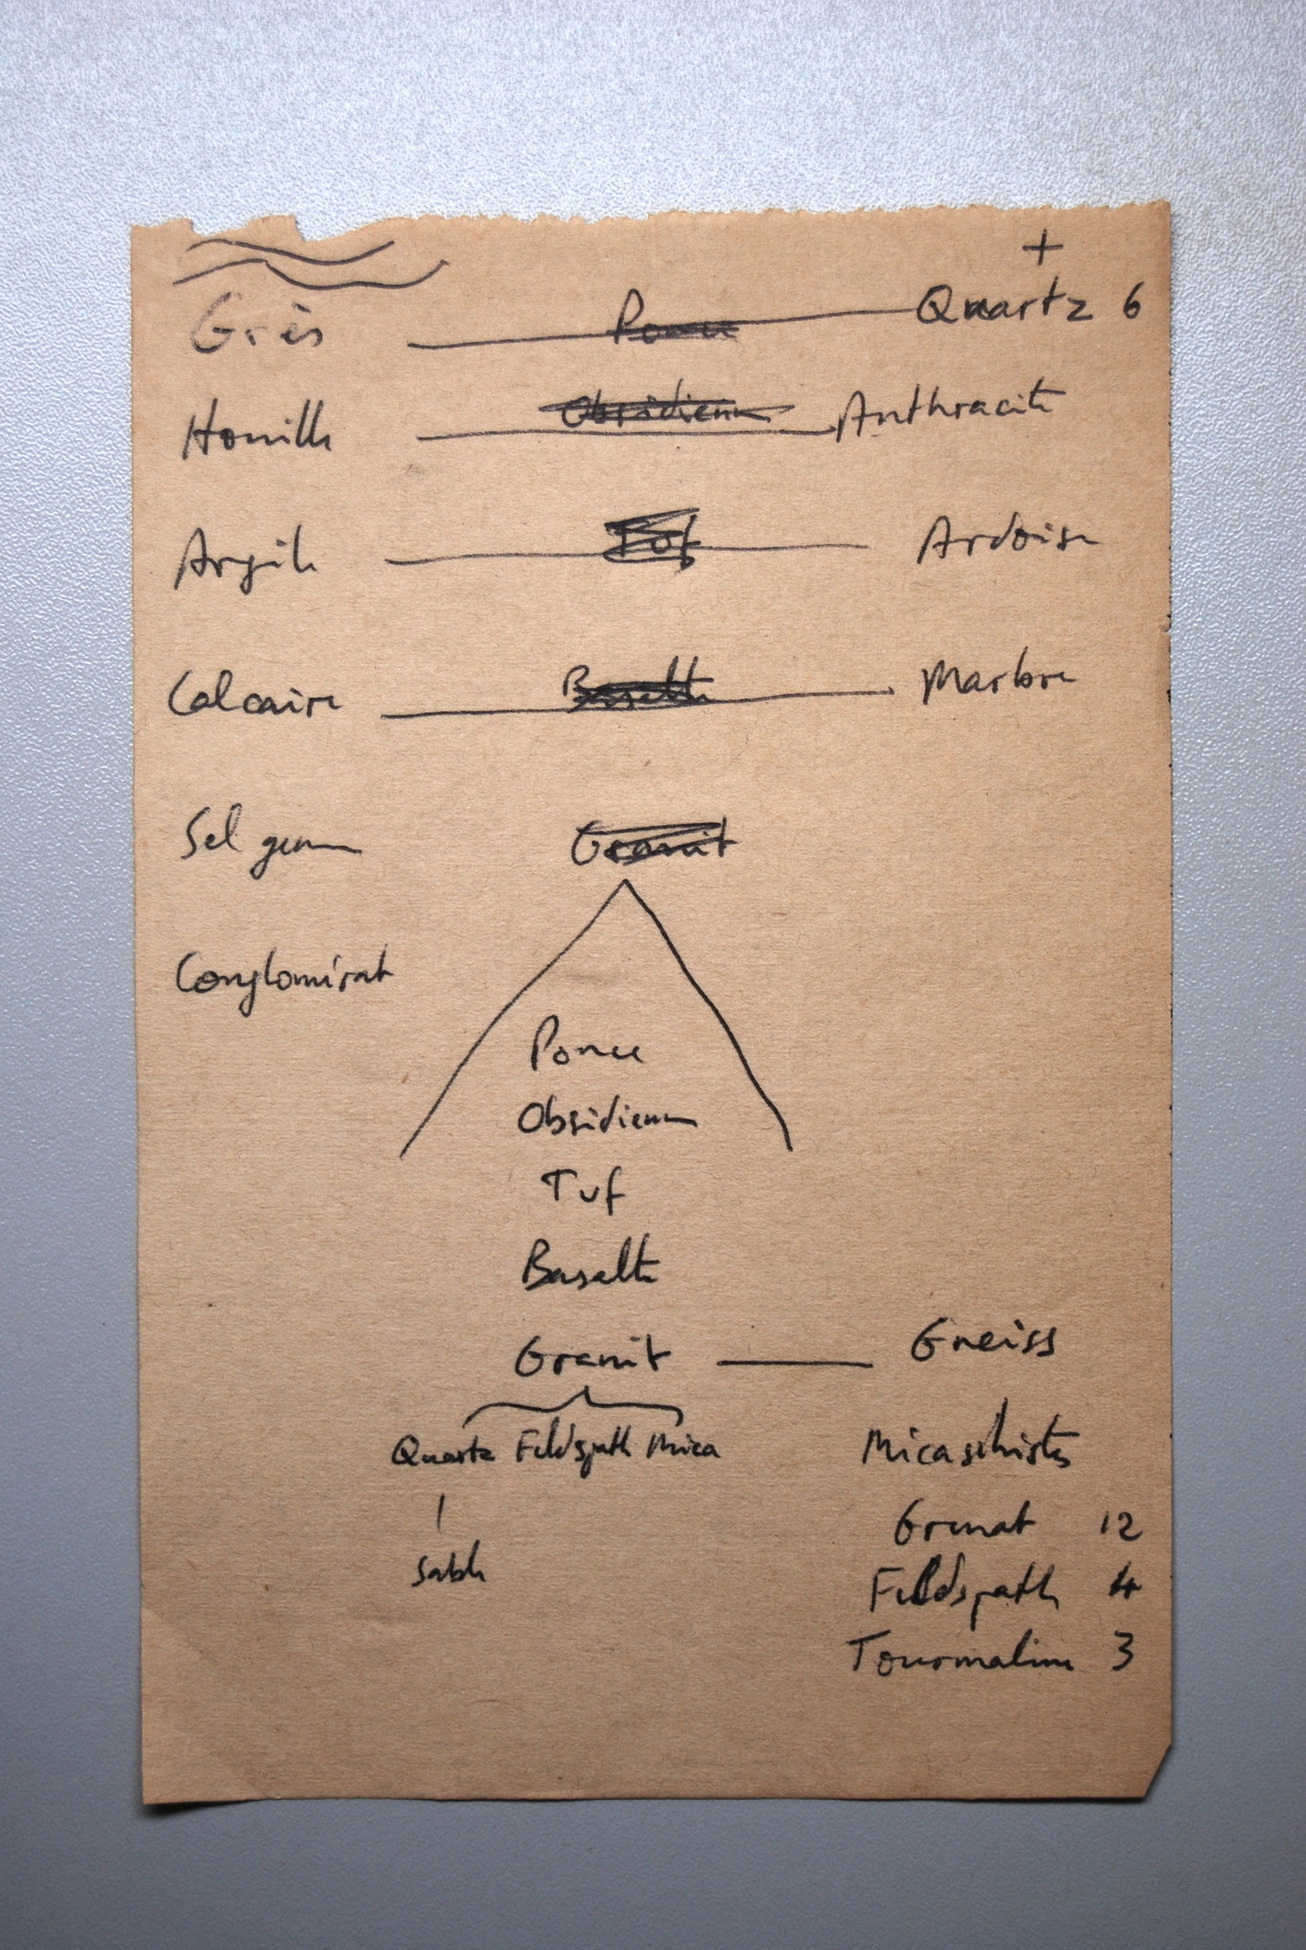 +
Grès Ponce Quartz 6
Houille Obsidienne Anthracite
Argile Tuf Ardoise
Calcaire Basalte Marbre
Sel gemme Granit
Conglomérat
Ponce
Obsidienne
Tuf
Basalte
Granit Gneiss
Quartz Feldspath Mica Micaschistes
Grenat 12
sable Feldspath 4
Tourmaline 3